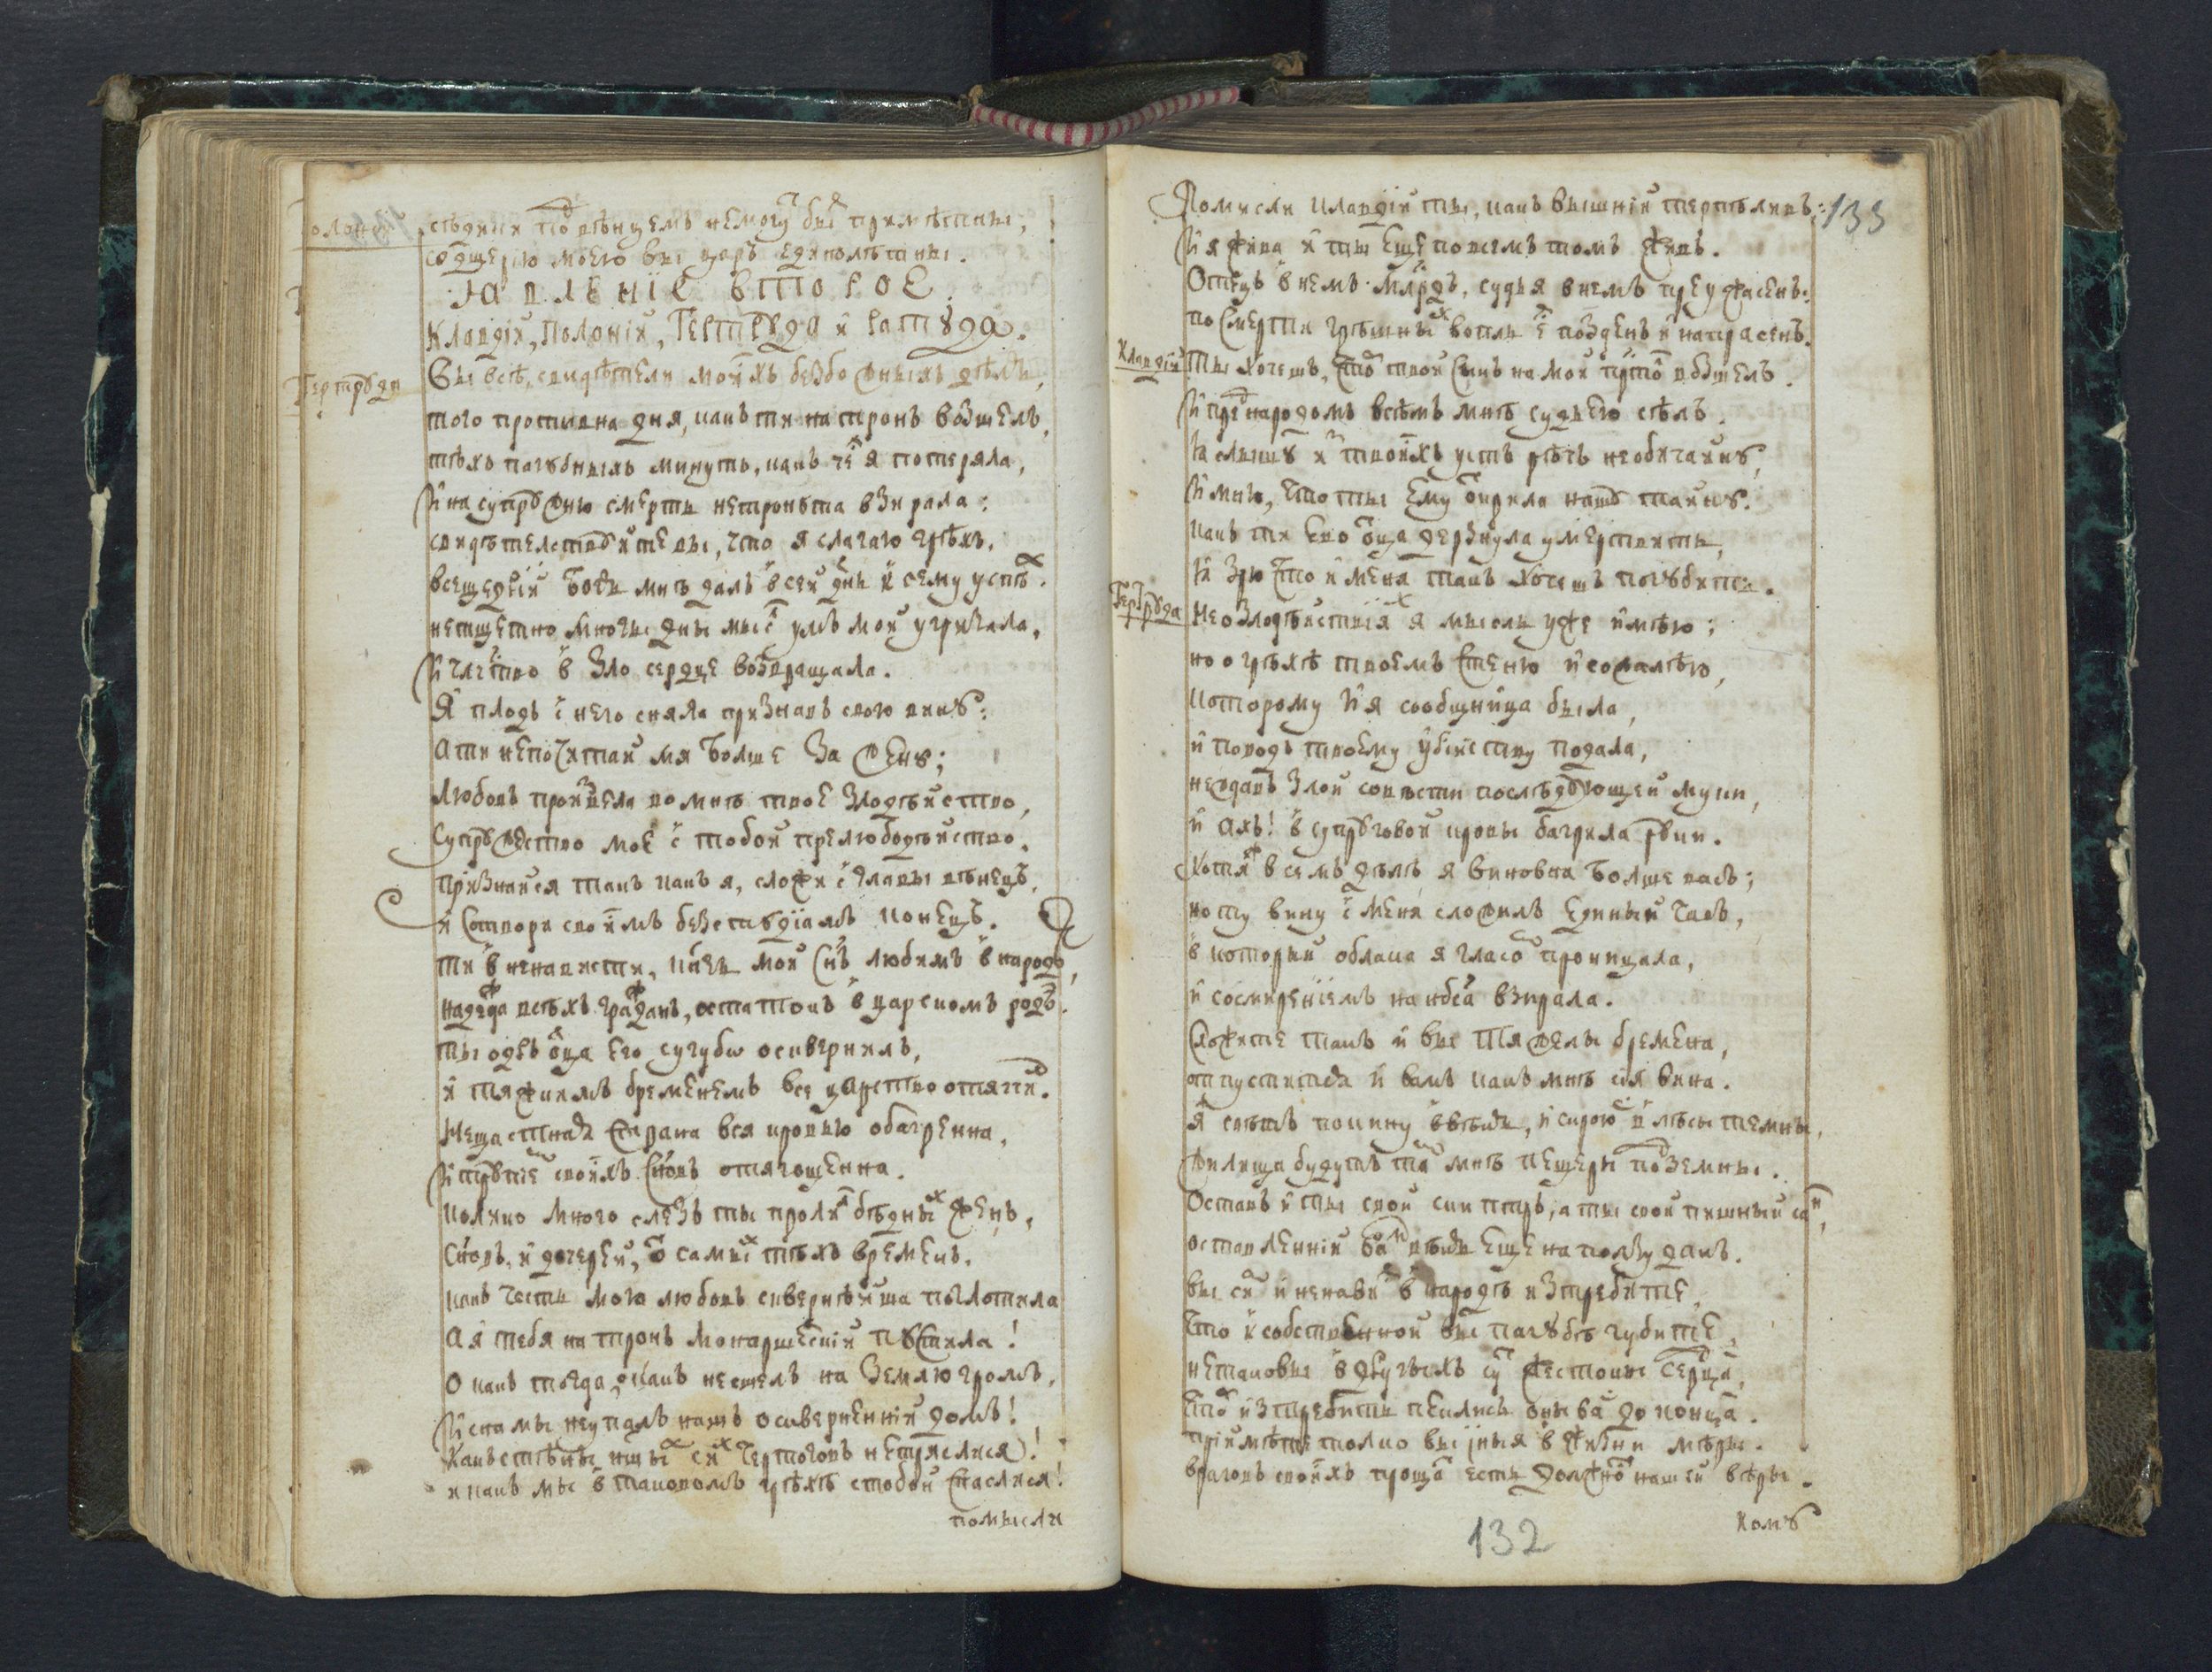 Полоній
сѣдини под вѣнцемъ немогут быт примѣтны,
со дщерію моею вы царь единолѣтны.
Явленіе второе.
Клавдій, Полоній, Гертруда и Ратуда.
Гертруда
Вы всѣ, свидѣтели моихъ безбожныхъ дѣлъ,
того противна дня, какъ ти на тронъ возшелъ,
тѣхъ пагубныхъ минутъ, какъ честь я потеряла,
И на супружню смерть нетронута взирала:
свидѣтелствуйте вы, что я слагаю грѣхъ,
всещедрій Богъ мнѣ далъ в сей день к сему успѣх.
нетщетно многы дны мысль умъ мой угризала,
И чувство в зло сердце возвращала.
Я плодъ с него сняла признавъ свою вину:
А ти непочитай мя болше за жену;
Любовь произвела во мнѣ твое злодѣйство,
Супружество мое с тобой прелюбодѣйство.
признайся такъ какъ я, сложи с главы вѣнецъ,
и сотвори своимъ безстудіямъ конецъ.
ти в ненависти, князь мой Снъ любимъ в народѣ,
надежда всѣхъ гражданъ, остатокъ в царскомъ родѣ.
ты одръ оца его сугубо осквернилъ,
и тяжкимъ бременемъ все царство отягчил.
Нещастная страна вся кровью обагренна,
И трупіем своихъ Сновъ отягощенна.
колико много слезъ ты пролил бѣдных женъ,
Сновъ, и дочерей, от самых тѣхъ временъ.
какъ честь мою любовь сквернѣйша поглотила
А я тебя на тронъ монаршескій пустила!
О какъ тогда, какъ нешелъ на землю громъ,
И снами неупалъ нашъ оскверненній домъ!
Какъ стѣны нщых сих Чертоговъ нетряслися!
и какъ мы в таковомъ грѣхѣ стобой спаслися!
помысли
133
Помисли Клавдій ты, какъ вышній терпѣливъ:
И я жива и ты еще повсемъ томъ живъ.
Отецъ в немъ млсрдъ, судья внемъ преужасенъ:
по смерти грѣшных вопль есть позденъ и напрасенъ.
Клавдій
Ты хочешъ, чтоб твой Снъ на мой прстол взошелъ.
И пред народомъ всѣмъ мнѣ судьею сѣлъ.
Я слышу из твоихъ устъ рѣчь необичайну,
И мню, что ты ему открила нашу тайну.
какъ ти ево отца дерзнула умертвить,
Я зрю что и меня такъ хочешъ погубить.
Гертруда
Не о злодѣйствіях я мысль уже имѣю;
но о грѣхѣ твоемъ стеню и сожалѣю,
Которому и я сообщница была,
и поводъ твоему убійству подала,
неждавъ злой совѣсти послѣдующей муки,
и ахъ! в супруговой крови багрила руки.
Хотя ж в семъ дѣлѣ я виновна болше васъ;
но ту вину с меня сложилъ единый часъ,
в который облака я гласом проницала,
и со смиреніемъ на нбса взирала.
Сложите такъ и вы тяжелы бремена,
отпустится и вамъ какъ мнѣ сія вина.
Я свѣтъ покину весь, и скрою в лѣсы темны,
жилища будутъ там мнѣ пещеры подземны.
Оставь и ты свой скиптръ, а ты свой пишный сан,
оставленній вам вѣкъ еще на ползу данъ.
вы сим и ненависть в народѣ изтребите,
Что и собственной вы пагубѣ губите,
нетаковы в другыхъ сут жестоки сердца,
Чтоб изтребить пеклись оны вас до конца.
пріимѣте толко вы иныя в жизни мѣры.
враговъ своихъ прощат есть должност нашей вѣры.
132
Кому